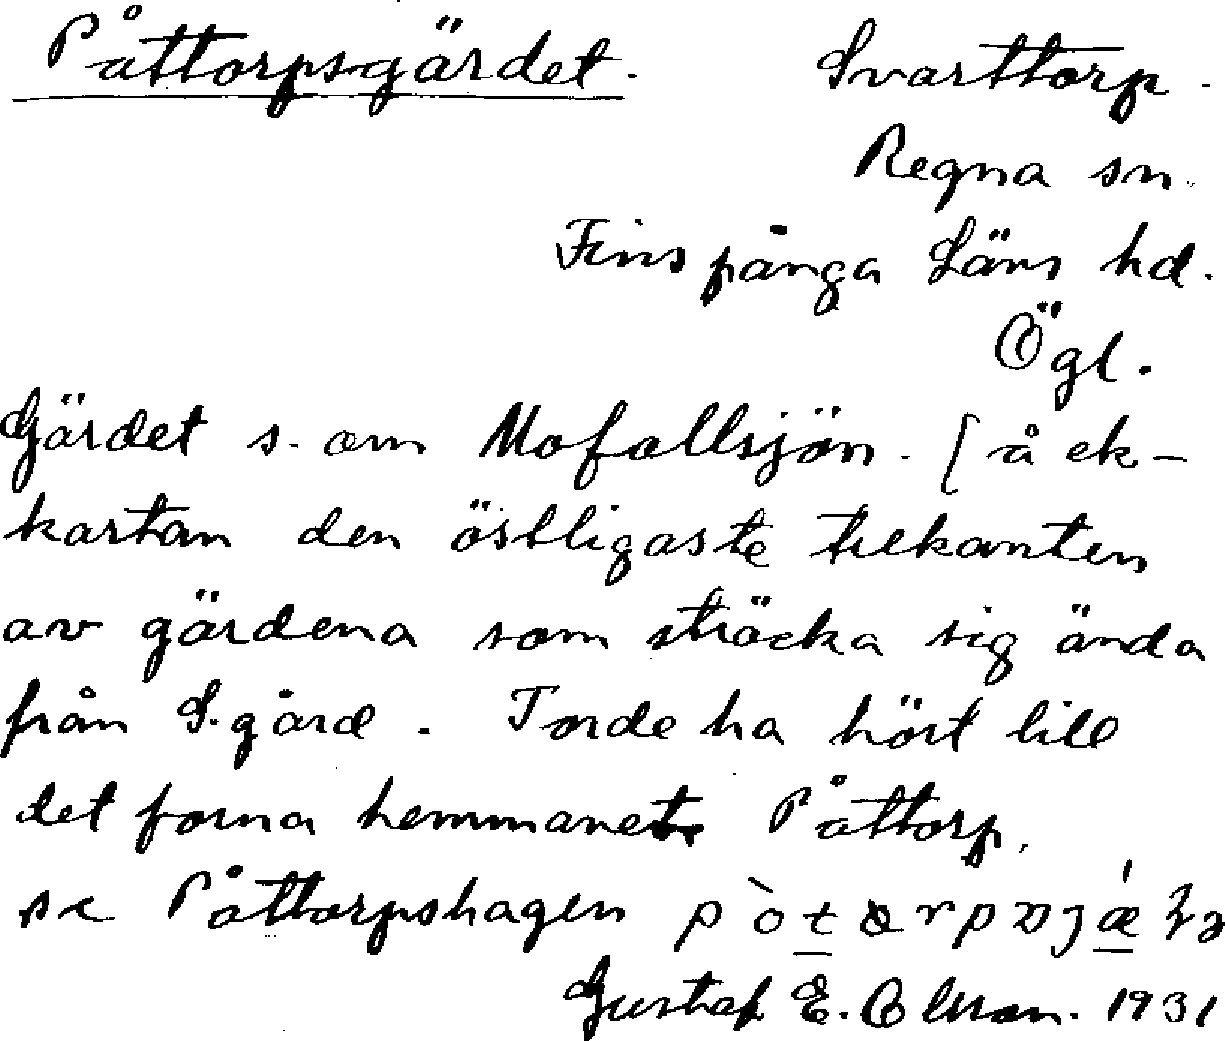 Påttorpsgärdet. Svarttorp.
Regna sn.
Finspånga Läns hd.
Ögl.
Gärdet s. om Mofallsjön. [å ek-
kartan den östligaste trekanten
av gärdena som sträcka sig ända
från S. gård. Torde ha hört till
det forna hemmanet Påttorp,
se Påttorpshagen
Gustaf E. 1931